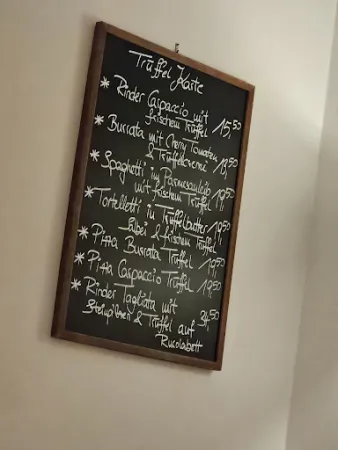 Trüffel Karte
* Rinder Carpaccio mit
frischem Trüffel 15,50
* Burrata mit Cherry Tomaten
& Trüffelcreme 13,50
* Spaghetti im Parmesanlaib
mit frischem Trüffel 19,50
* Tortelletti in Trüffelbutter 19,50
Salbei & frischem Trüffel
* Pizza Burrata Trüffel 19,50
* Pizza Carpaccio Trüffel 19,50
* Rinder Tagliata mit
& Trüffel auf 34,50
Rucolabett